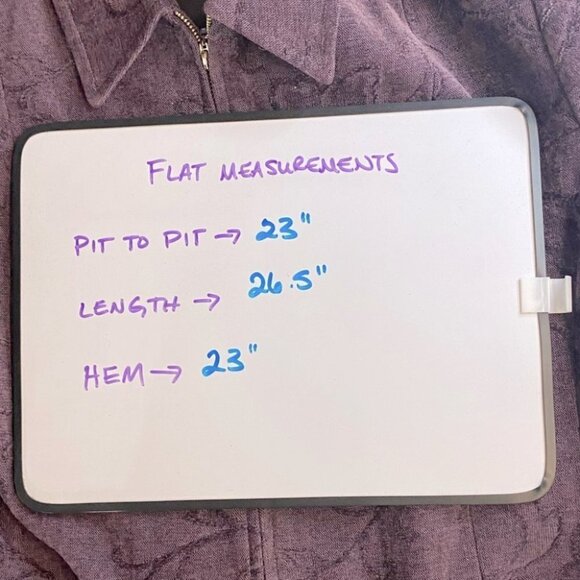 FLAT MEASUREMENTS
PIT TO PIT → 23"
LENGTH → 26.5"
HEM → 23"